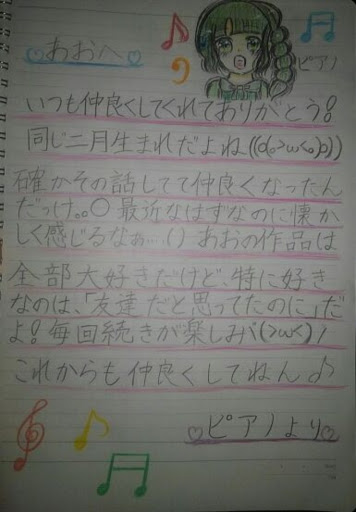 ♡あおへ♡
ピアノ
いつも仲良くしてくれてありがとう!
同じ二月生まれだよね((o(｡>ω<｡)o))
確かその話してて仲良くなったん
だっけ｡｡○ 最近なはずなのに懐か
しく感じるなぁ…() あおの作品は
全部大好きだけど、特に好き
なのは、「友達だと思ってたのに」だ
よ!毎回続きが楽しみ(>ω<)ﾉ
これからも仲良くしてねん♪
♡ピアノより♡